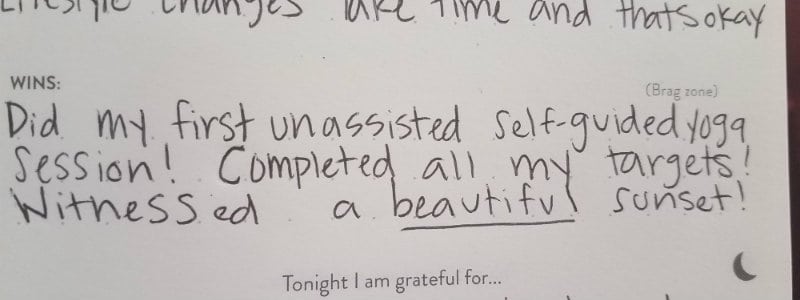 Lifestyle changes take time and thats okay
WINS:
(Brag zone)
Did my first unassisted self-guided yoga
Session! Completed all my targets!
Witnessed a beautiful sunset!
Tonight I am grateful for...